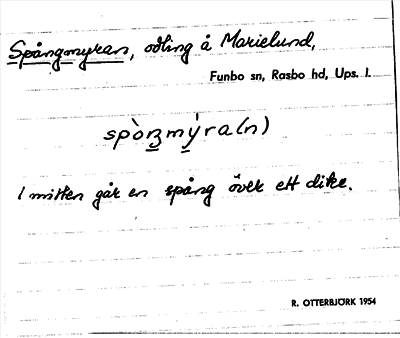 Spångmyran, odling å Marielund,
Funbo sn, Rasbo hd, Ups. l.
spòŋmýra(n)
I mitten går en spång över ett dike.
R. OTTERBJÖRK 1954